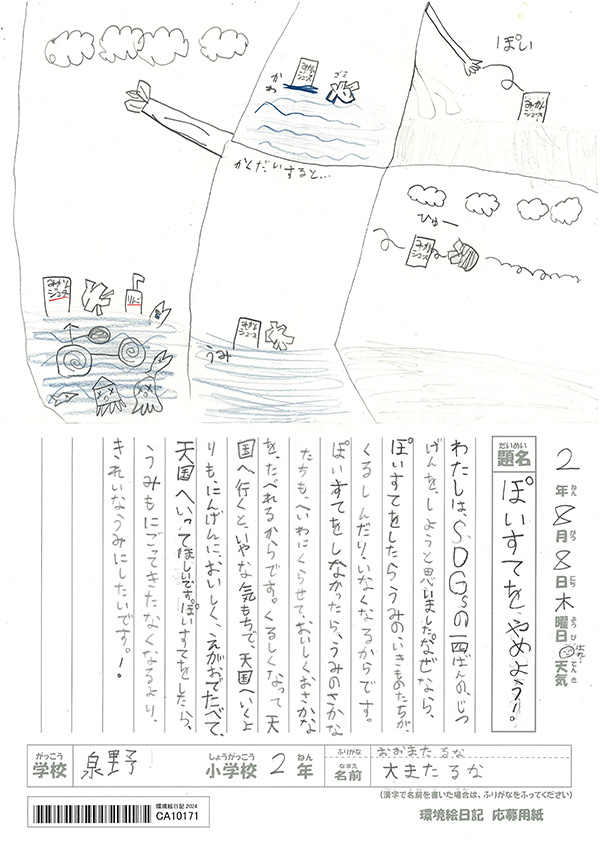 ぽい
みかん
ジュース
ひゅー
みかん
ジュース
かわ
みかん
ジュース
ゴミ
かくだいすると…
みかん
ジュース
うみ
みかん
ジュース
りんご
2年8月8日木曜日 天気
ねん がつ にち ようび てんき
だいめい
題名
ぽいすてを、やめよう!。
わたしは、SDGsの一四ばんの、じつ
げんを、しようと思いました。なぜなら、
ぽいすてをしたら、うみの、いきものたちが、
くるしんだり、いなくなるからです。
ぽいすてをしなかったら、うみのさかな
たちも、へいわにくらせて、おいしくおさかな
を、たべれるからです。くるしくなって天
国へ行くと、いやな気もちで、天国へいくよ
りも、にんげんに、おいしく、えがおでたべて、
天国へいってほしいです。ぽいすてをしたら、
うみもにごってきたなくなるより、
きれいなうみにしたいです。!.
がっこう
学校
泉野
しょうがっこう
小学校
2年
ねん
ふりがな
おおまた るな
なまえ
名前
大また るな
(漢字で名前を書いた場合は、ふりがなをふってください)
環境絵日記2024
CA10171
環境絵日記 応募用紙